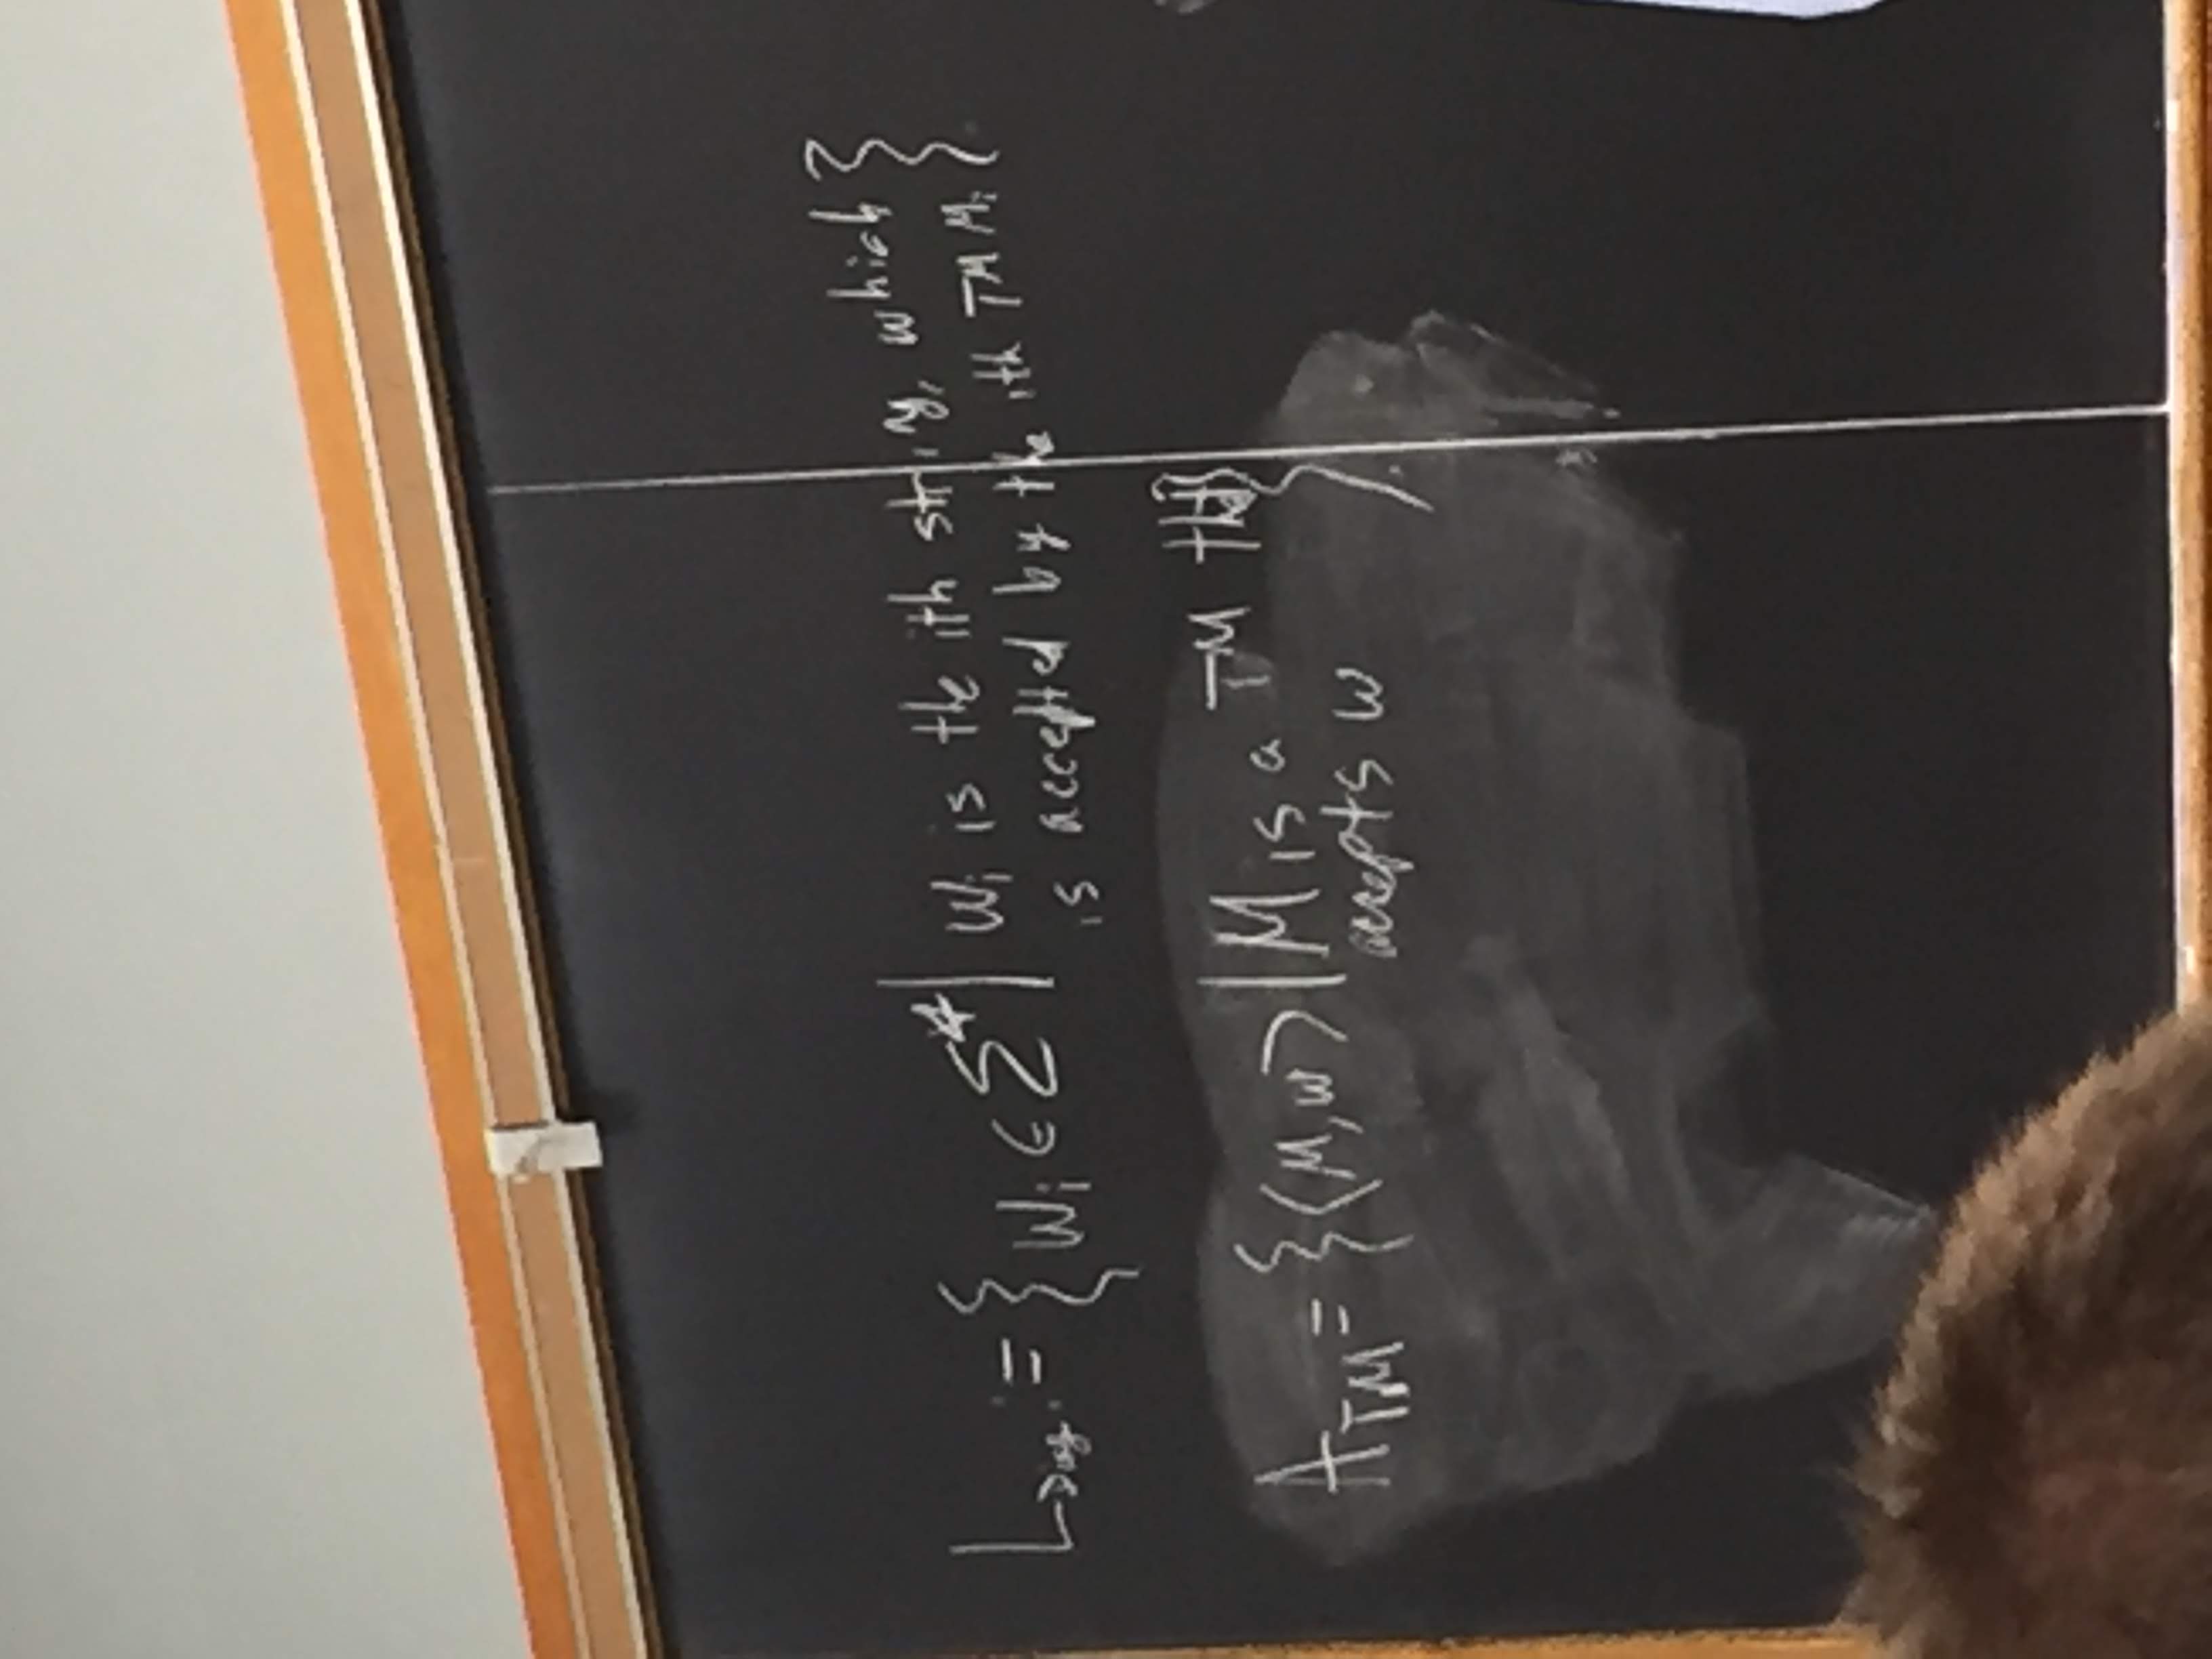 L_Diag. = { W_i ∈ Σ* | W_i is the ith string, which
is accepted by the ith TM M_i }
A_TM = { ⟨M, w⟩ | M is a TM that
accepts w }